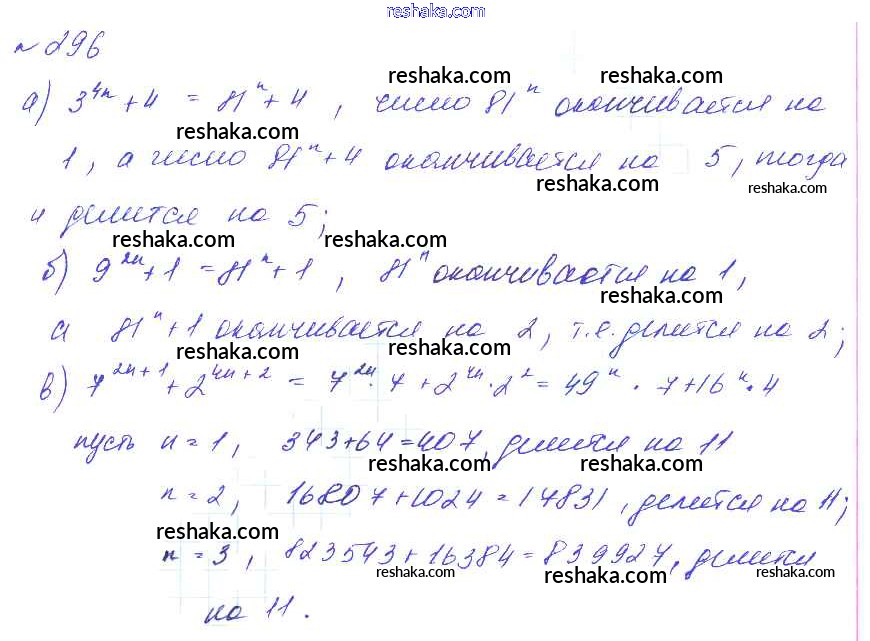 reshaka.com
№ 296
reshaka.com reshaka.com
а) 3^4n + 4 = 81^n + 4 , число 81^n оканчивается на
reshaka.com
1 , а число 81^n + 4 оканчивается на 5 , тогда
reshaka.com reshaka.com
и делится на 5 ;
reshaka.com reshaka.com
б) 9^2n + 1 = 81^n + 1 , 81^n оканчивается на 1 ,
reshaka.com
а 81^n + 1 оканчивается на 2 , т.е. делится на 2 ;
reshaka.com reshaka.com
в) 7^2n+1 + 2^4n+2 = 7^2n · 7 + 2^4n · 2^2 = 49^n · 7 + 16^n · 4
пусть n = 1 , 343 + 64 = 407 , делится на 11
reshaka.com reshaka.com
n = 2 , 16807 + 1024 = 17831 , делится на 11 ;
reshaka.com
n = 3 , 823543 + 16384 = 839927 , делится
reshaka.com reshaka.com reshaka.com
на 11 .